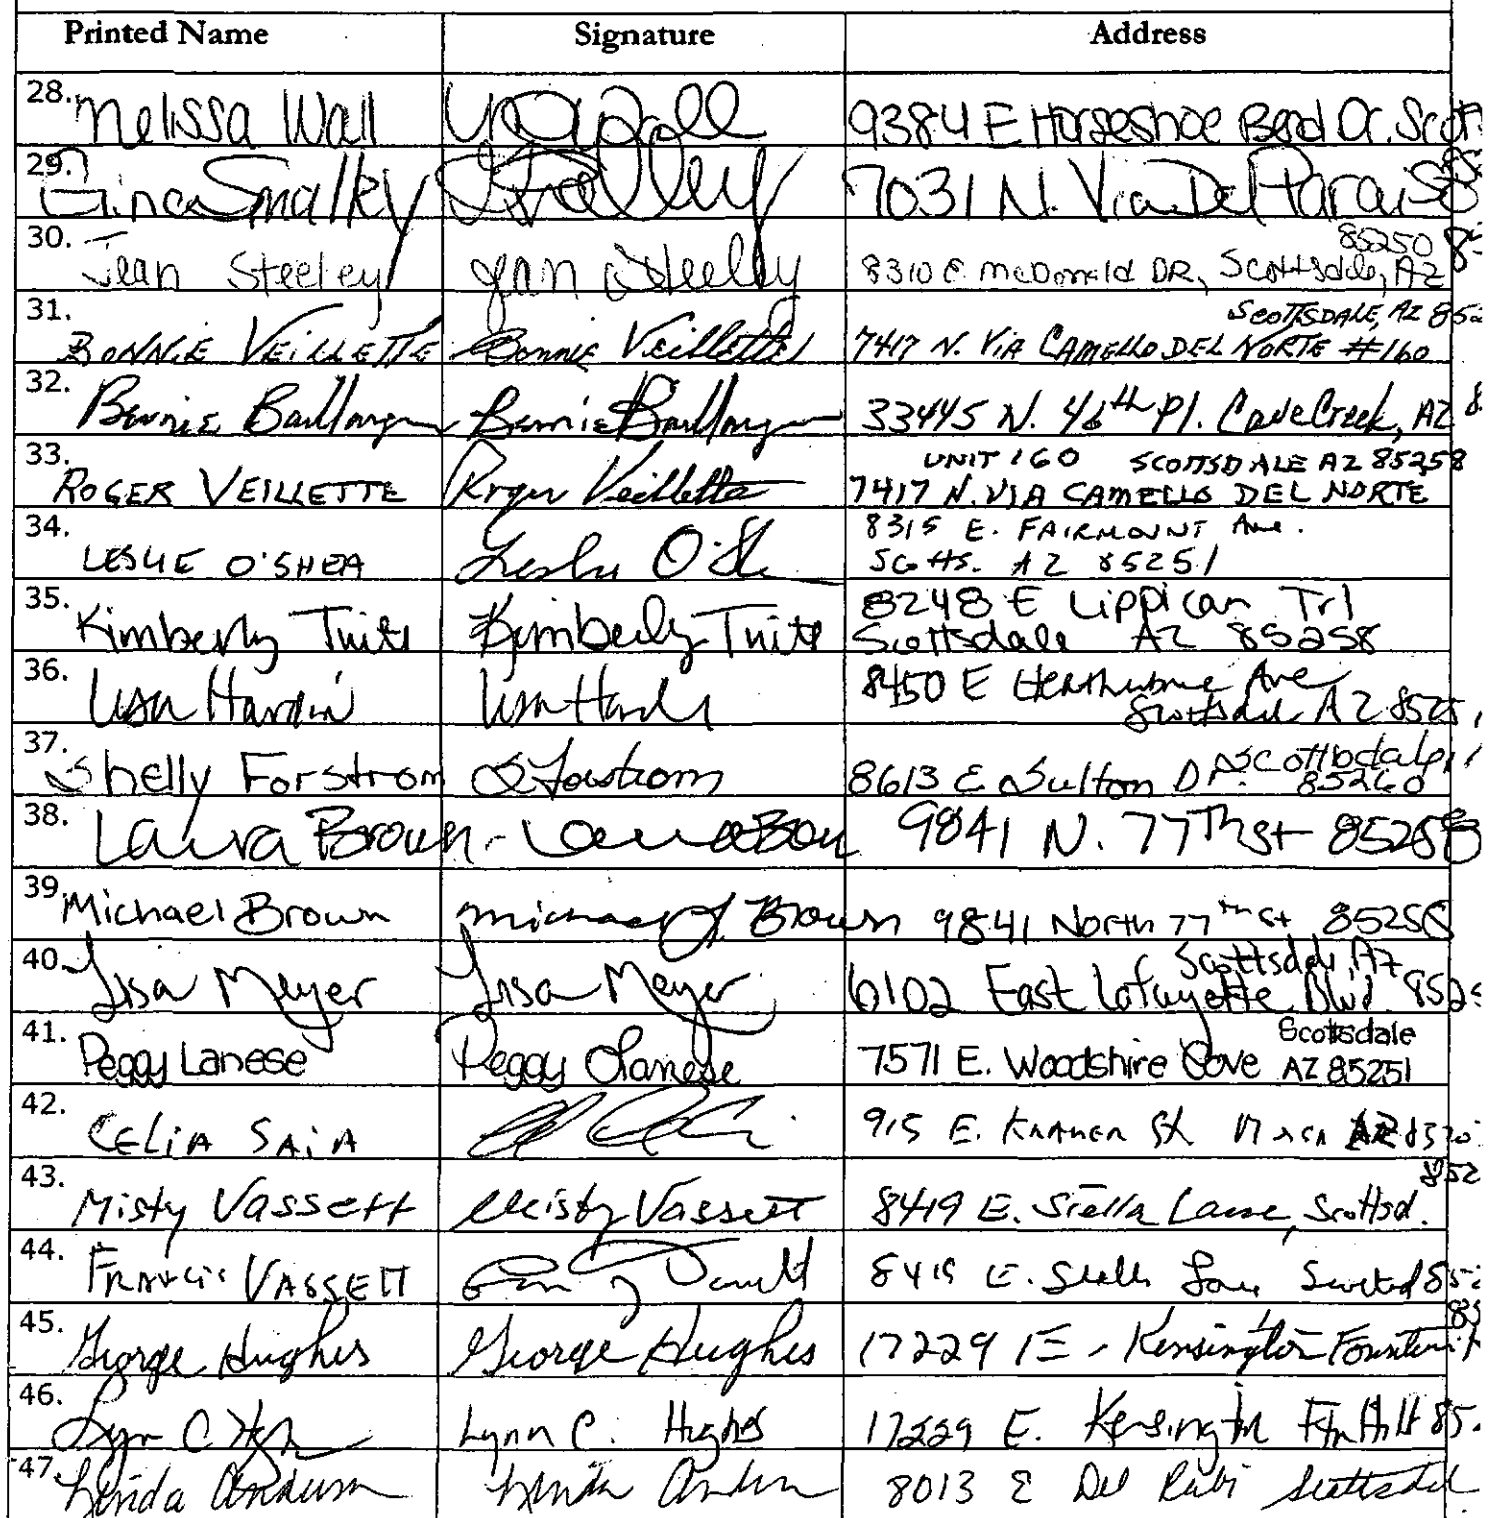 Printed Name Signature Address
28. Melissa Wall 9384 E Horseshoe Bend Dr. Scott
29. Gina Smalley Smalley 7031 N. Via Del Paraiso
30. Jean Steeley Jean Steeley 8310 E. McDonald DR, Scottsdale, AZ 85250
31. BONNIE VEILLETTE Bonnie Veillette SCOTTSDALE, AZ 852
7417 N. VIA CAMELLO DEL NORTE #160
32. Bernie Baillargeon Bernie Baillargeon 33445 N. 46th Pl. Cave Creek, AZ 8
33. ROGER VEILLETTE Roger Veillette UNIT 160 SCOTTSDALE AZ 85258
7417 N. VIA CAMELLO DEL NORTE
34. LESLIE O'SHEA Leslie O'Sh 8315 E. FAIRMOUNT Ave.
Scotts. AZ 85251
35. Kimberly Tuite Kimberly Tuite 8248 E Lippizan Trl
Scottsdale AZ 85258
36. Lisa Hardin Lisa Hardi 8450 E
Scottsdale AZ 8525
37. Shelly Forstrom S Forstrom 8613 E Sutton Dr. Scottsdale
85260
38. Laura Brown Laura Brown 9841 N. 77th St 85258
39. Michael Brown Michael J. Brown 9841 North 77th St 85258
40. Lisa Meyer Lisa Meyer Scottsdale, Az
6102 East Lafayette Blvd. 852
41. Peggy Lanese Peggy Lanese 7571 E. Woodshire Cove Scottsdale
AZ 85251
42. CELIA SAIA 915 E. Kramer St Mesa AZ 8520
43. Misty Vassett Misty Vassett 8419 E. Stella Lane, Scottsd. 852
44. FRANCIS VASSETT 8419 E. Stella Lane 852
45. George Hughes George Hughes 17229 E. Kensington Fountain H
46. Lynn C. Hughes 17229 E. Kensington Ftn Hills 85
47. Linda Anderson Linda 8013 E Del Rubi Scottsdale